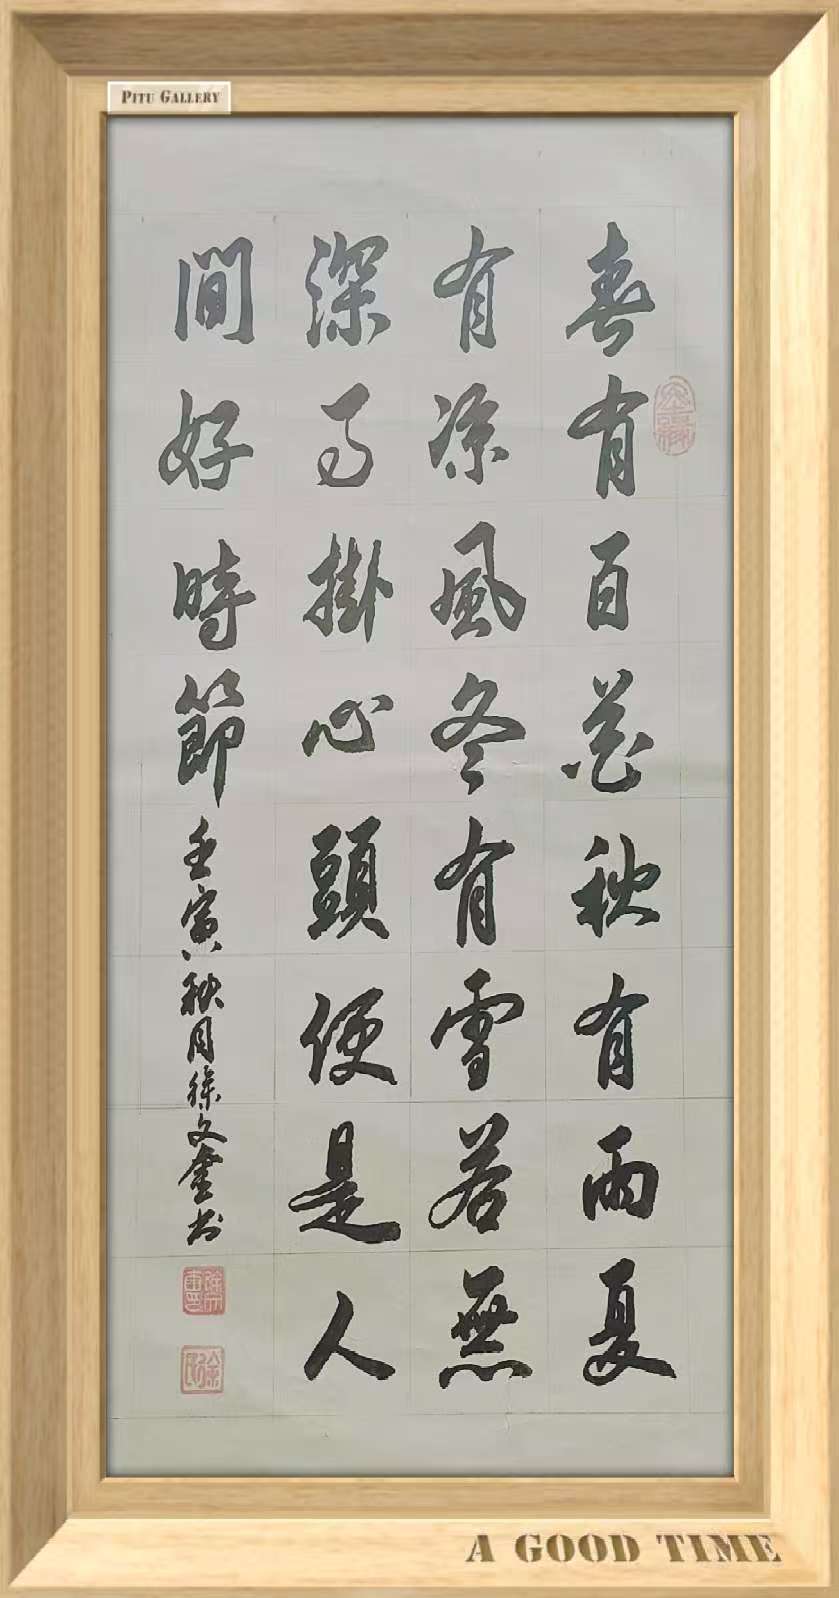 PITU GALLERY
春有百花秋有雨夏
有凉風冬有雪若無
深事掛心頭便是人
間好時節
壬寅秋月徐文书
A GOOD TIME